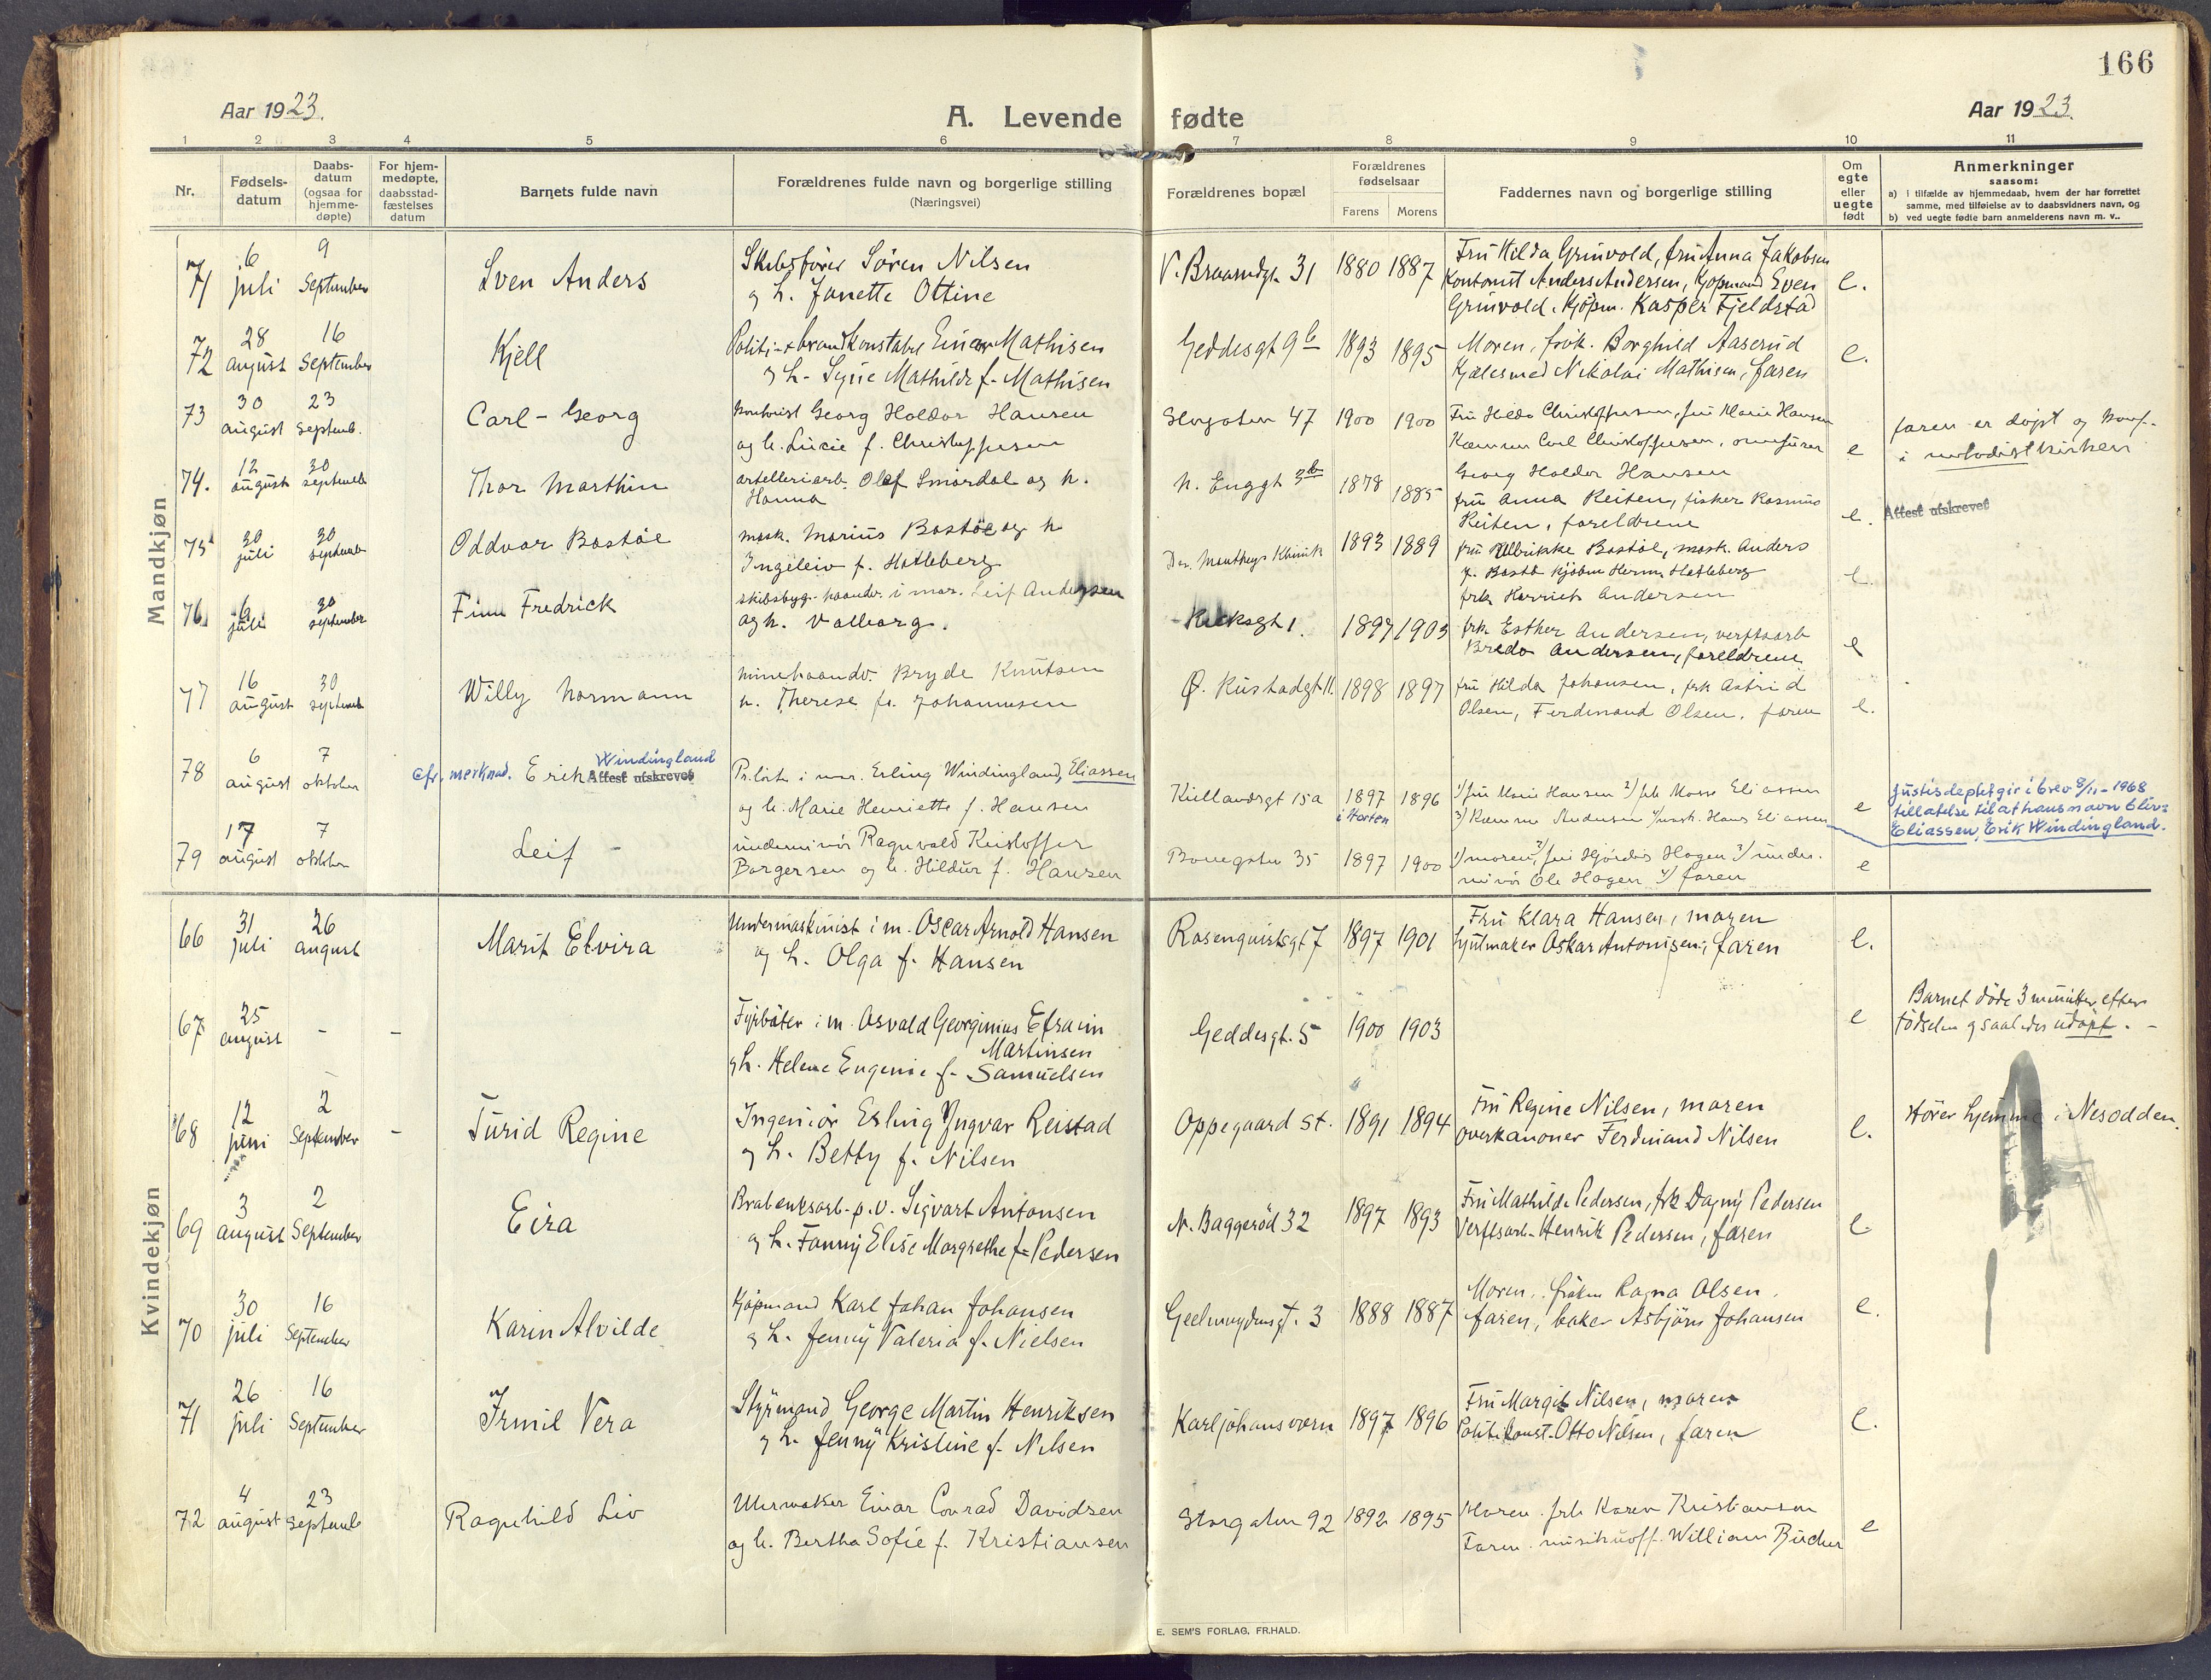 166
Aar 1923.
A. Levende fødte
Aar 1923.
1 2 3 4 5 6 7 8 9 10 11
Nr.
Fødsels-
datum
Daabs-
datum
(ogsaa for
hjemme-
døpte)
For hjem-
medøpte,
daabsstad-
fæstelses
datum
Barnets fulde navn
Forældrenes fulde navn og borgerlige stilling
(Næringsvei)
Forældrenes bopæl
Forældrenes
fødselsaar
Farens Morens
Faddernes navn og borgerlige stilling
Om
egte
eller
uegte
født
Anmerkninger
saasom:
a) i tilfælde av hjemmedaab, hvem der har forrettet
samme, med tilføielse av to daabsvidners navn, og
b) ved uegte fødte barn anmelderens navn m. v..
Mandkjøn
71 6 juli 9 September
Sven Anders
Skibsfører Søren Nilsen
og h. Janette Ottine
V. Braarudgt. 31 1880 1887
Fru Hilda Grinvold, fru Anna Jakobsen
Kontorist Anders Andersen, Kjøpmand Even
Grinvold. Kjøpm. Kasper Fjeldstad
e.
72 28 august 16 September
Kjell
Politi- & brandkonstabel Einar Mathisen
og h. Signe Mathilde f. Mathisen
Geddesgt 9b 1893 1895
Moren, frøk. Borghild Aaserud
Nikolai Mathisen, faren
e.
73 30 august 23 septemb.
Carl-Georg
Georg Holdor Hansen
og h. Lucie f. Christoffersen
Storgaten 47 1900 1900
Fru Hilda Christoffersen, fru Marie Hansen
Carl Christoffersen,
Georg Holdor Hansen
e
faren er døpt og konf.
i metodistkirken
74. 12 august 30 septemb
Thor Marthin
artelleriarb. Olaf Smørdal og h.
Hanna
N. Enggt 3b 1878 1885
fru Anna Reiten, fisker Rasmus
Reiten, foreldrene
e.
Attest utskrevet
75 30 juli 30 septemb
Oddvar Bastøe
mask. Marius Bastøe og h
Ingeleiv f. Hatleberg
Dr. Mantheys Klinik 1893 1889
fru Ulrikke Bastøe, mask. Anders
Herm. Hatleberg
frk Henriette Andersen
e
76 6 juli 30 september
Finn Fredrick
skibsbyg. haandv. i mar. Leif Andersen
og h. Valborg.
Kirksgt 1. 1897 1903
frk. Esther Andersen, verftsarb
Bredo Andersen, foreldrene
e
77 16 august 30 septemb
Willy Normann
minehaandv. Bryde Knutsen
h. Therese fr. Johannesen
Ø. Rustadgt 11. 1898 1897
fru Hilda Johansen, frk Astrid
Olsen, Ferdinand Olsen, faren
e.
78 6 august 7 oktober
cfr. merknad. Erik Windingland
Attest utskrevet
i mar. Erling Windingland, Eliassen
og h. Marie Henriette f. Hansen
Kiellandsgt 15a 1897 1896
i Horten
1) fru Marie Hansen 2) frk Eliassen
3) Andersen 4) mask. Hans Eliassen
e
Justisdeptet gir i brev 8/11-1968
tillatelse til at hans navn blir:
Eliassen, Erik Windingland.
79 17 august 7 oktober
Leif
underminør Ragnvald Kristoffer
Borgersen og h. Hildur f. Hansen
35 1897 1900
1) moren, 2) fru Hjördis Hagen 3) under-
minør Ole Hagen 4) faren
e
Kvindekjøn
66 31 juli 26 august
Marit Elvira
Undermaskinist i m. Oscar Arnold Hansen
og h. Olga f. Hansen
Rosenquistsgt 7 1897 1901
Fru Klara Hansen, moren
hjulmaker Oskar Antonisen, faren
e.
67 25 august - -
Fyrbøter i m. Osvald Georginius Efraim
Martinsen
og h. Helene Eugenie f. Samuelsen
Geddesgt. 5 1900 1903
e
Barnet døde 3 minutter efter
fødselen og saaledes udøpt. -
68 12 juni 2 September -
Turid Regine
Ingeniør Erling Yngvar Reistad
og h. Betty f. Nilsen
Oppegaard St. 1891 1894
Fru Regine Nilsen, moren
Overkanoner Ferdinand Nilsen
e.
Hører hjemme i Nesodden.
69 3 august 2 September
Eira
Sigvart Antonsen
og h. Fanny Elise Margrethe f. Pedersen
N. Baggerød 32 1897 1893
Fru Mathilde Pedersen, frk Dagny Pedersen
Verftsarb. Henrik Pedersen, faren
e
70 30 juli 16 September
Karin Alvilde
Kjøpmand Karl Johan Johansen
og h. Jenny Valeria f. Nielsen
Geelmuydensgt. 3 1888 1887
Moren, frøken Ragna Olsen,
faren, baker Asbjørn Johansen
e.
71 26 juli 16 September
Irmil Vera
Styrmand George Martin Henriksen
og h. Jenny Kristine f. Nilsen
Karljohansværn 1897 1896
Fru Margit Nilsen, moren
Politikonst. Otto Nilsen, faren
e.
72 4 august 23 septemb
Ragnhild Liv
Urmaker Einar Conrad Davidsen
og h. Bertha Sofie f. Kristiansen
Storgaten 92 1892 1895
Moren. frk Karen Kristiansen
Faren. William Bücher
e
E. SEM'S FORLAG, FR.HALD.